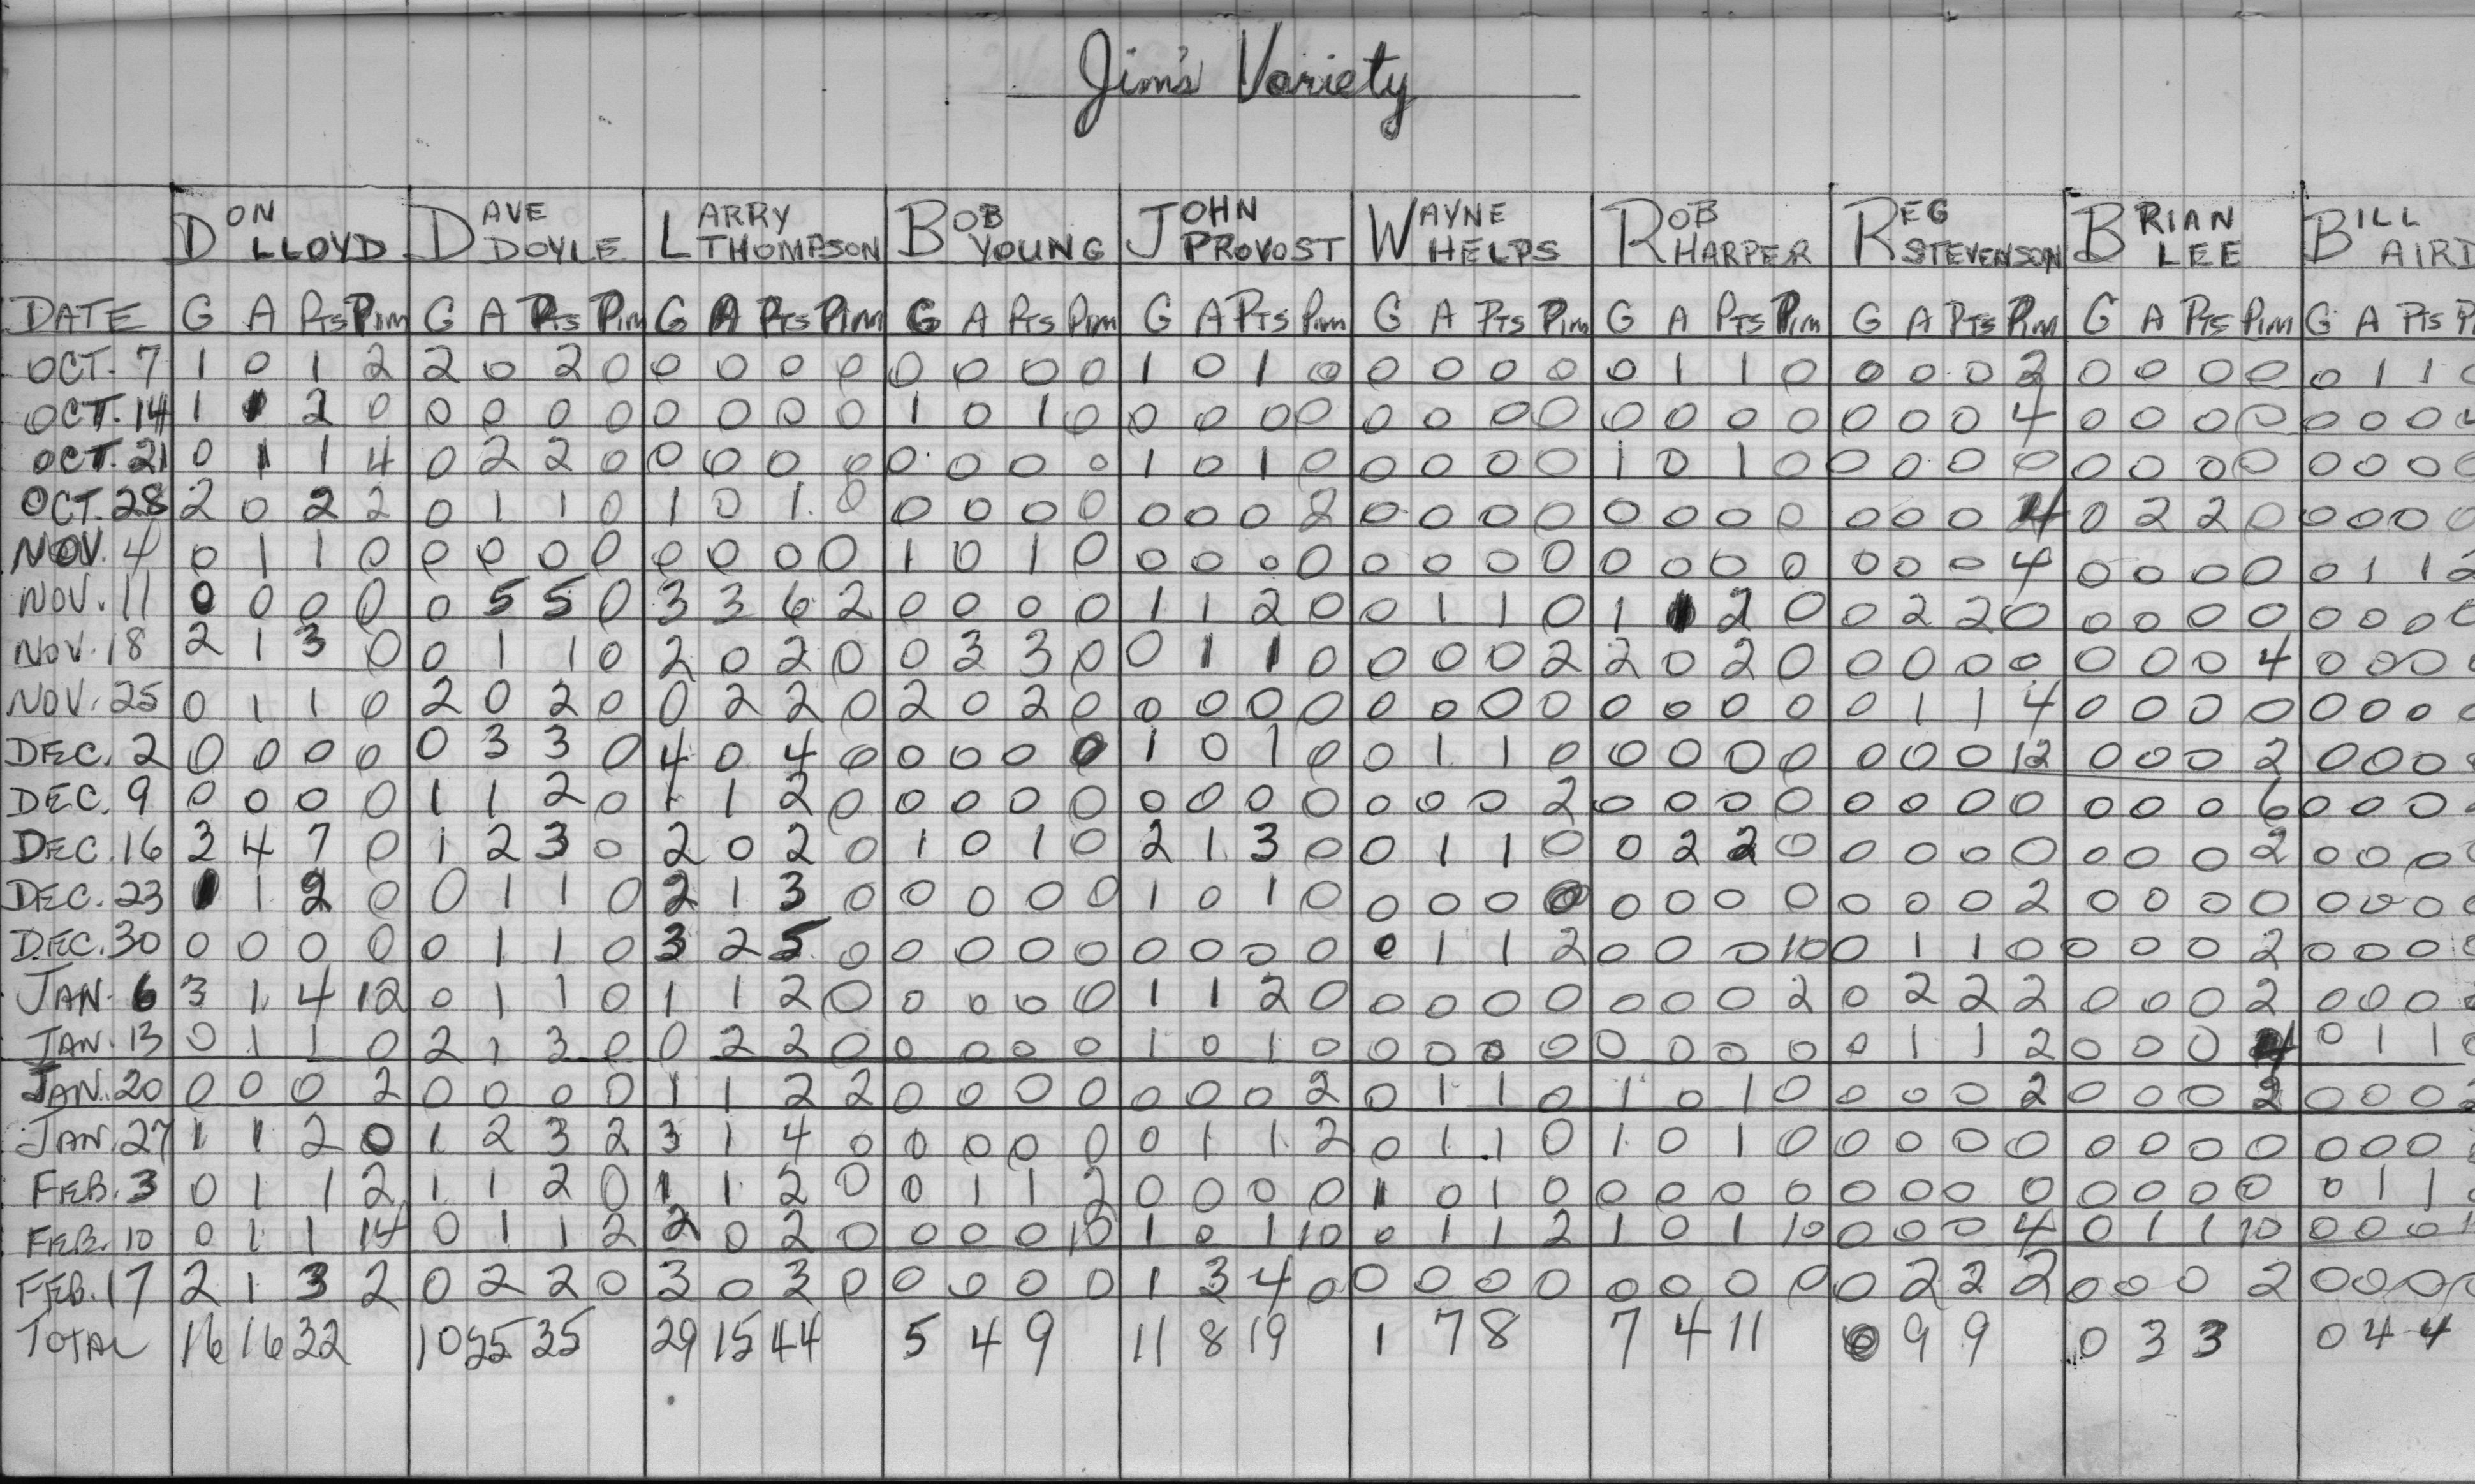 Jim's Variety
DON LLOYD DAVE DOYLE LARRY THOMPSON BOB YOUNG JOHN PROVOST WAYNE HELPS ROB HARPER REG STEVENSON BRIAN LEE BILL AIRD
DATE G A PTS PIM G A PTS PIM G A PTS PIM G A PTS PIM G A PTS PIM G A PTS PIM G A PTS PIM G A PTS PIM G A PTS PIM G A PTS P
OCT. 7 1 0 1 2 2 0 2 0 0 0 0 0 0 0 0 0 1 0 1 0 0 0 0 0 0 1 1 0 0 0 0 2 0 0 0 0 0 1 1
OCT. 14 1 1 2 0 0 0 0 0 0 0 0 0 1 0 1 0 0 0 0 0 0 0 0 0 0 0 0 0 0 0 0 4 0 0 0 0 0 0 0
OCT. 21 0 1 1 4 0 2 2 0 0 0 0 0 0 0 0 0 1 0 1 0 0 0 0 0 1 0 1 0 0 0 0 0 0 0 0 0 0 0 0 0
OCT. 28 2 0 2 2 0 1 1 0 1 0 1 0 0 0 0 0 0 0 0 2 0 0 0 0 0 0 0 0 0 0 0 4 0 2 2 0 0 0 0 0
NOV. 4 0 1 1 0 0 0 0 0 0 0 0 0 1 0 1 0 0 0 0 0 0 0 0 0 0 0 0 0 0 0 0 4 0 0 0 0 0 1 1 2
NOV. 11 0 0 0 0 0 5 5 0 3 3 6 2 0 0 0 0 1 1 2 0 0 1 1 0 1 1 2 0 0 2 2 0 0 0 0 0 0 0 0 0
NOV. 18 2 1 3 0 0 1 1 0 2 0 2 0 0 3 3 0 0 1 1 0 0 0 0 2 2 0 2 0 0 0 0 0 0 0 0 4 0 0 0
NOV. 25 0 1 1 0 2 0 2 0 0 2 2 0 2 0 2 0 0 0 0 0 0 0 0 0 0 0 0 0 0 1 1 4 0 0 0 0 0 0 0
DEC. 2 0 0 0 0 0 3 3 0 4 0 4 0 0 0 0 0 1 0 1 0 0 1 1 0 0 0 0 0 0 0 0 12 0 0 0 2 0 0 0
DEC. 9 0 0 0 0 1 1 2 0 1 1 2 0 0 0 0 0 0 0 0 0 0 0 0 2 0 0 0 0 0 0 0 0 0 0 0 6 0 0 0
DEC. 16 3 4 7 0 1 2 3 0 2 0 2 0 1 0 1 0 2 1 3 0 0 1 1 0 0 2 2 0 0 0 0 0 0 0 0 2 0 0 0
DEC. 23 1 1 2 0 0 1 1 0 2 1 3 0 0 0 0 0 1 0 1 0 0 0 0 0 0 0 0 0 0 0 0 2 0 0 0 0 0 0 0
DEC. 30 0 0 0 0 0 1 1 0 3 2 5 0 0 0 0 0 0 0 0 0 0 1 1 2 0 0 0 10 0 1 1 0 0 0 0 2 0 0 0
JAN. 6 3 1 4 12 0 1 1 0 1 1 2 0 0 0 0 0 1 1 2 0 0 0 0 0 0 0 0 2 0 2 2 2 0 0 0 2 0 0 0
JAN. 13 0 1 1 0 2 1 3 0 0 2 2 0 0 0 0 0 1 0 1 0 0 0 0 0 0 0 0 0 0 1 1 2 0 0 0 4 0 1 1
JAN. 20 0 0 0 2 0 0 0 0 1 1 2 2 0 0 0 0 0 0 0 2 0 1 1 0 1 0 1 0 0 0 0 2 0 0 0 2 0 0 0
JAN. 27 1 1 2 0 1 2 3 2 3 1 4 0 0 0 0 0 0 1 1 2 0 1 1 0 1 0 1 0 0 0 0 0 0 0 0 0 0 0 0
FEB. 3 0 1 1 2 1 1 2 0 1 1 2 0 0 1 1 2 0 0 0 0 1 0 1 0 0 0 0 0 0 0 0 0 0 0 0 0 0 1 1
FEB. 10 0 1 1 14 0 1 1 2 2 0 2 0 0 0 0 10 1 0 1 10 0 1 1 2 1 0 1 10 0 0 0 4 0 1 1 10 0 0 0
FEB. 17 2 1 3 2 0 2 2 0 3 0 3 0 0 0 0 0 1 3 4 0 0 0 0 0 0 0 0 0 0 2 2 2 0 0 0 2 0 0 0 0
TOTAL 16 16 32 10 25 35 29 15 44 5 4 9 11 8 19 1 7 8 7 4 11 0 9 9 0 3 3 0 4 4